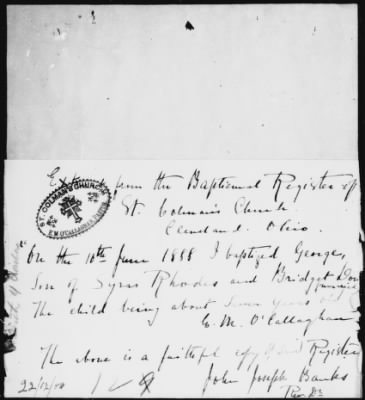 Extract from the Baptismal Register of
St. Colman's Church
Cleveland. Ohio.
ST. COLMAN'S CHURCH
E. M. O'CALLAGHAN, PASTOR
"On the 10th June 1888 I baptized George,
Son of Syrus Rhodes and Bridget
The child being about Seven years old
E. M. O'Callaghan
The above is a faithful copy of said Register
John Joseph Banks
22/12/00
129